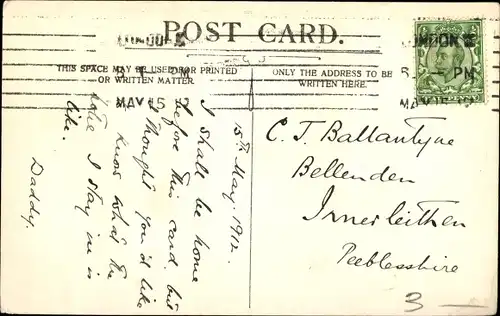 POST CARD.
THIS SPACE MAY BE USED FOR PRINTED
OR WRITTEN MATTER.
ONLY THE ADDRESS TO BE
WRITTEN HERE.
LONDON
MAY 15 12
LONDON
5. PM
MAY 15
15th May. 1912.
I shall be home
before this card, but
I thought you'd like
to know what the
hotel I stay in is
like.
Daddy.
C. T. Ballantyne
Bellenden
Innerleithen
Peeblesshire
3 —